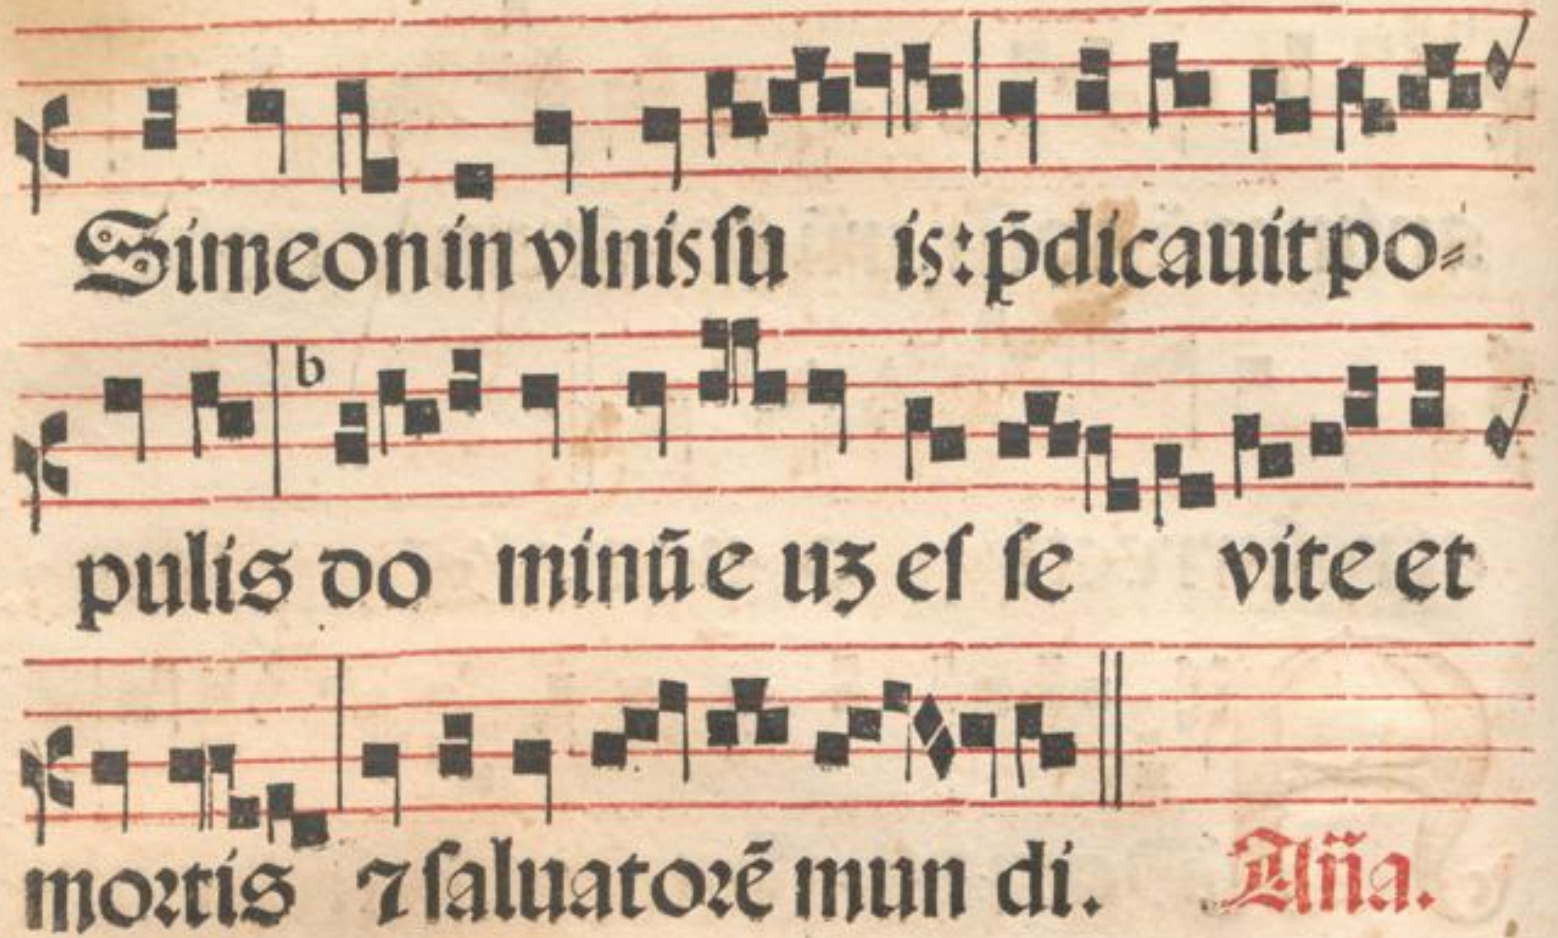 Simeon in vlnis ſu is: p̄dicauit po⸗
b
pulis do minū e uꝫ eſ ſe vite et
moꝛtis ⁊ ſaluatoꝛē mun di. An̄a.